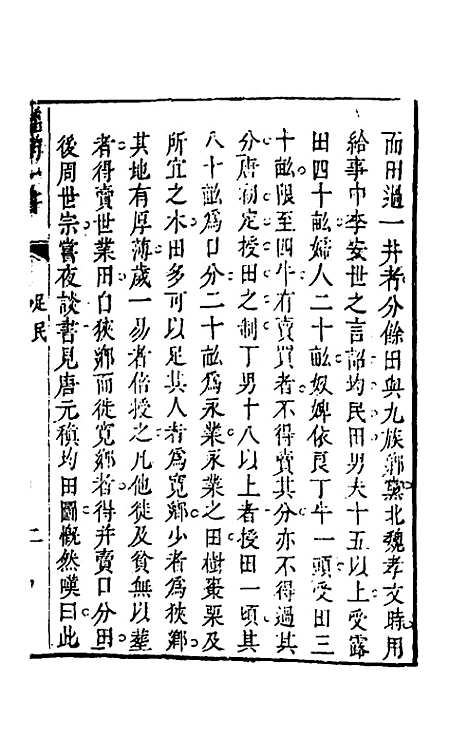 而田過一井者分餘田與九族鄉黨北魏孝文時用
給事中李安世之言詔均民田男夫十五以上受露
田四十畝婦人二十畝奴婢依良丁牛一頭受田三
十畝限至四牛有賣買者不得賣其分亦不得過其
分唐初定授田之制丁男十八以上者授田一頃其
八十畝爲口分二十畝爲永業永業之田樹棗栗及
所宜之木田多可以足其人者爲寬鄉少者爲狹鄉
其地有厚薄歲一易者倍授之凡他徙及貧無以塟
者得賣世業田自狹鄉而徙寬鄉者得并賣口分田
後周世宗嘗夜談書見唐元稹均田圖慨然嘆曰此
足民
二